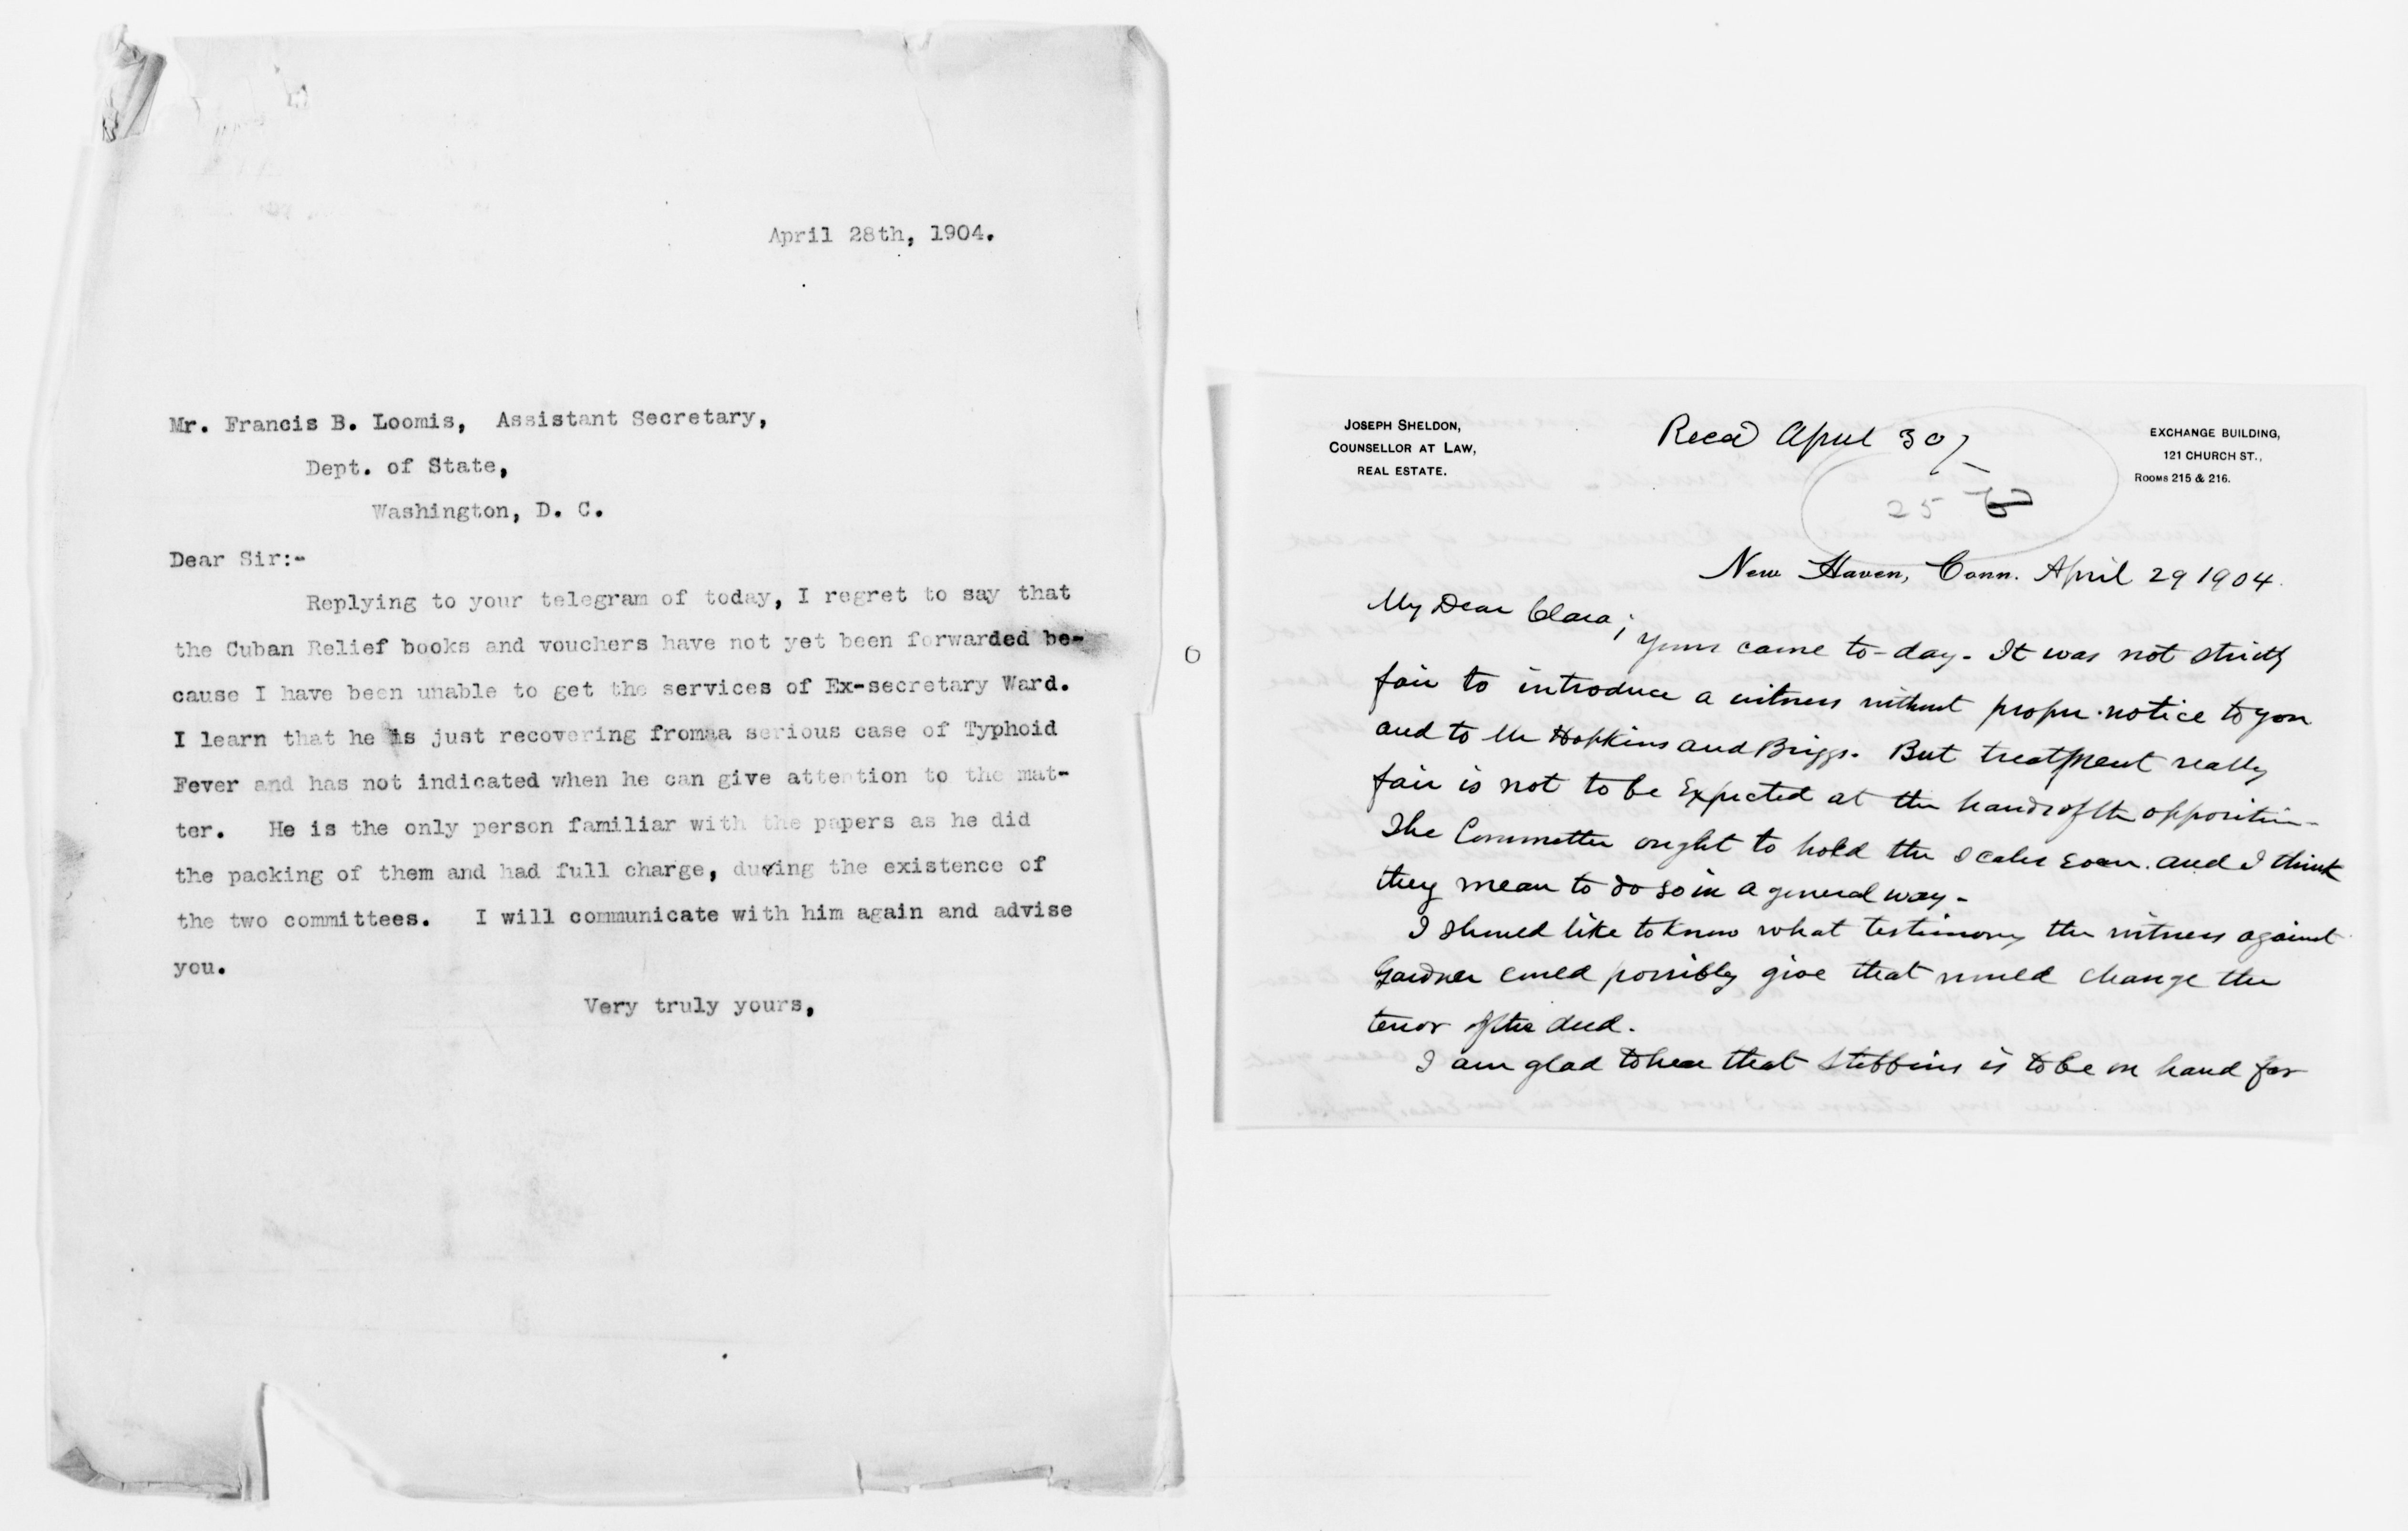 April 28th, 1904.
Mr. Francis B. Loomis, Assistant Secretary,
Dept. of State,
Washington, D. C.
Dear Sir:-
Replying to your telegram of today, I regret to say that
the Cuban Relief books and vouchers have not yet been forwarded be-
cause I have been unable to get the services of Ex-secretary Ward.
I learn that he is just recovering fromaa serious case of Typhoid
Fever and has not indicated when he can give attention to the mat-
ter. He is the only person familiar with the papers as he did
the packing of them and had full charge, during the existence of
the two committees. I will communicate with him again and advise
you.
Very truly yours,
JOSEPH SHELDON,
COUNSELLOR AT LAW,
REAL ESTATE.
Recd April 30/
25
EXCHANGE BUILDING,
121 CHURCH ST.,
ROOMS 215 & 216.
New Haven, Conn. April 29 1904.
My Dear Clara;
Yours came to-day - It was not strictly
fair to introduce a witness without proper notice to you
and to Mr Hopkins and Briggs. But treatment really
fair is not to be Expected at the hands of the opposition -
The Committee ought to hold the scales Even. and I think
they mean to do so in a general way -
I should like to know what testimony the witness against
Gardner could possibly give that would change the
tenor of the deed.
I am glad to hear that Stebbins is to be on hand for